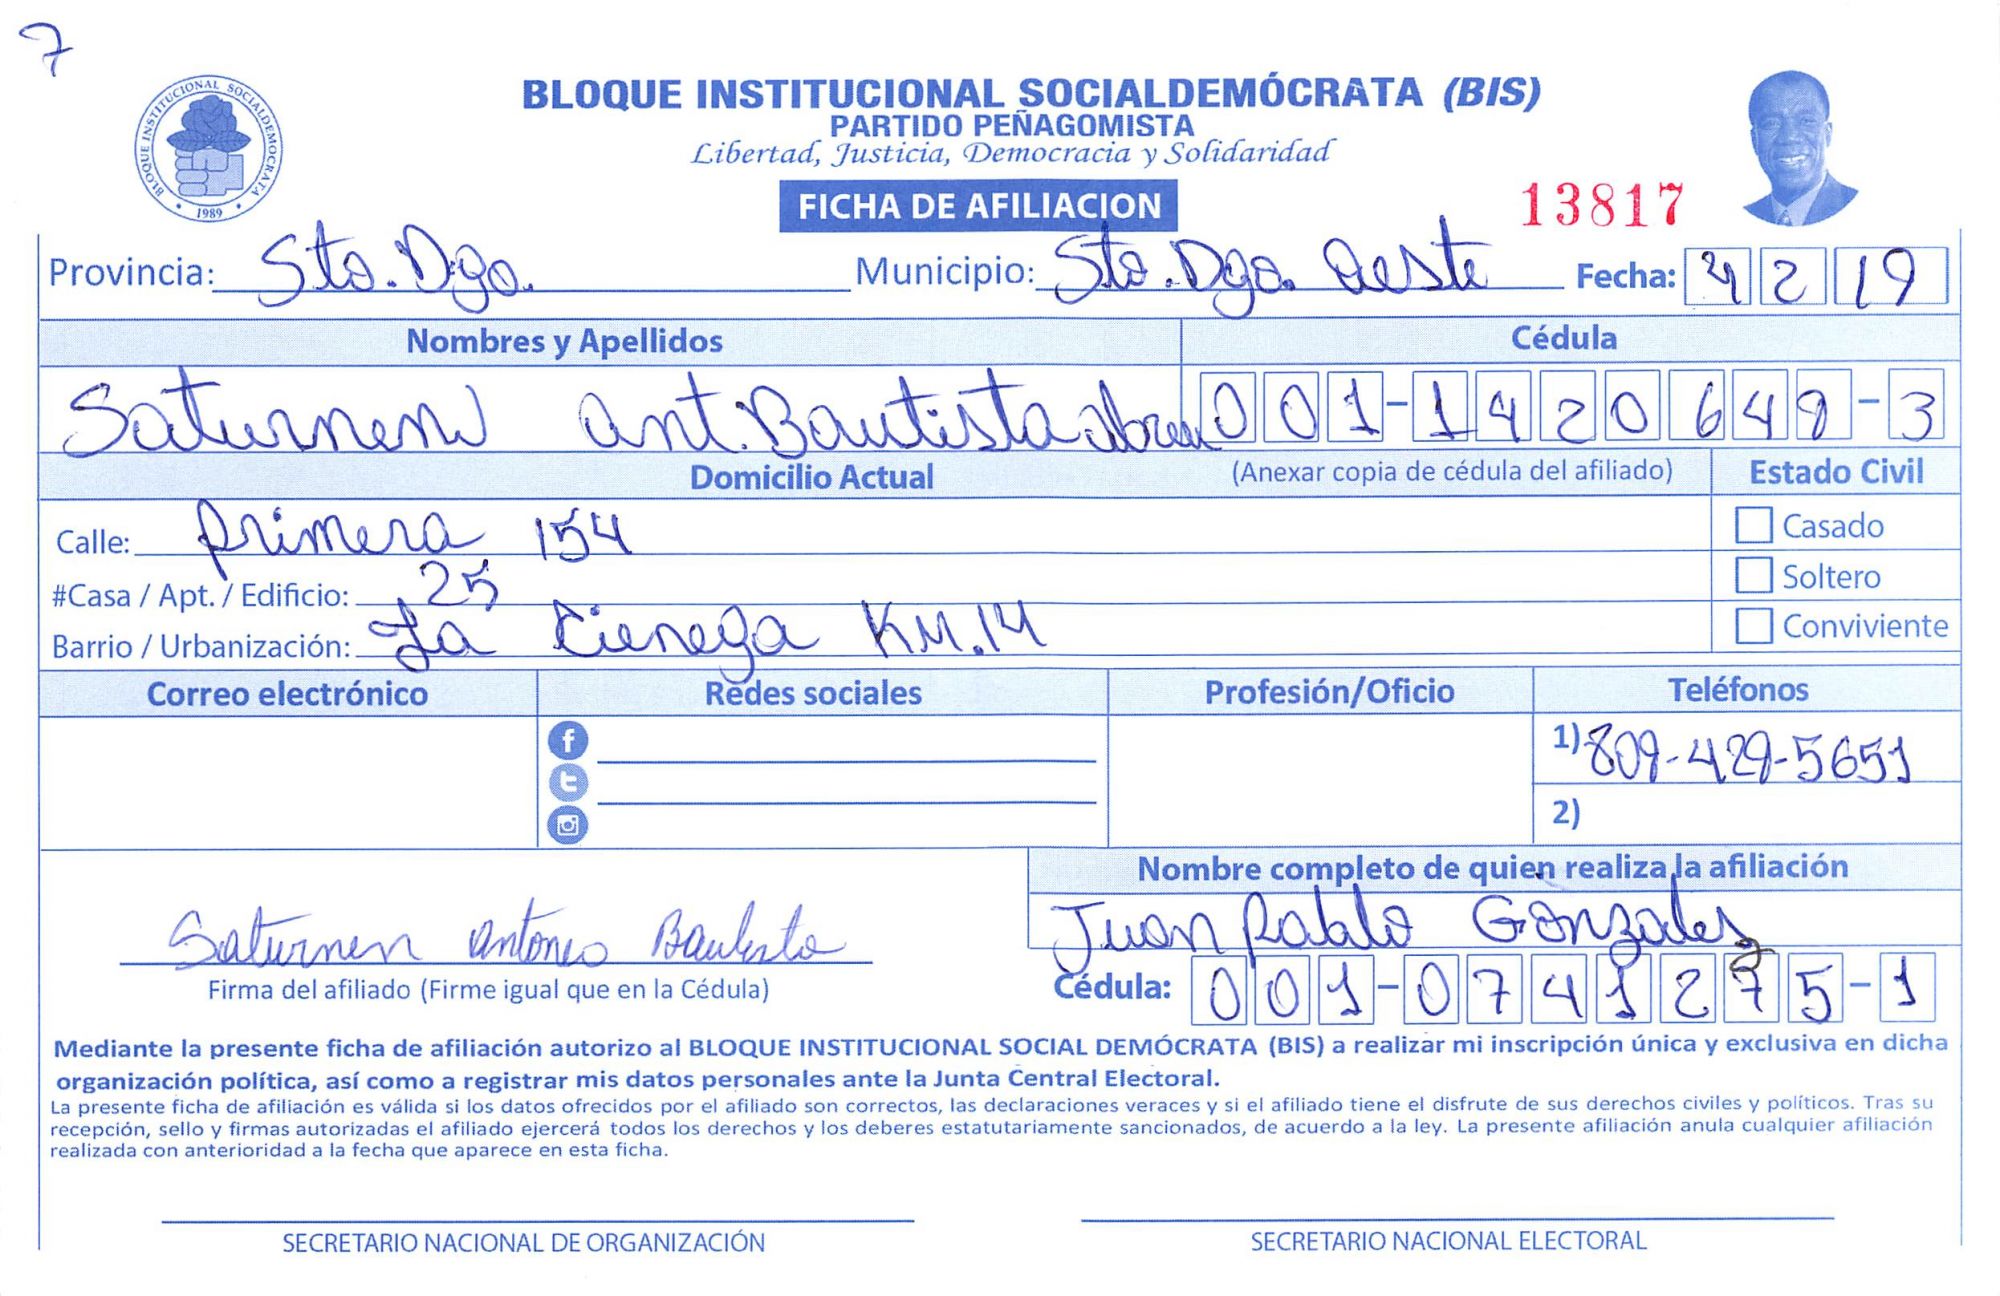 7
BLOQUE INSTITUCIONAL SOCIALDEMOCRATA
1989
BLOQUE INSTITUCIONAL SOCIALDEMÓCRATA (BIS)
PARTIDO PEÑAGOMISTA
Libertad, Justicia, Democracia y Solidaridad
FICHA DE AFILIACION
13817
Provincia: Sto. Dgo. Municipio: Sto. Dgo. Oeste Fecha: 4 2 19
Nombres y Apellidos Cédula
Saturnen ant. Bautista abreu 001-1420648-3
Domicilio Actual (Anexar copia de cédula del afiliado) Estado Civil
Calle: primera 154 Casado
#Casa / Apt. / Edificio: 25 Soltero
Barrio / Urbanización: La Cienega KM.14 Conviviente
Correo electrónico Redes sociales Profesión/Oficio Teléfonos
1) 809-429-5651
2)
Nombre completo de quien realiza la afiliación
Juan Pablo Gonzales
Saturnen antoneo Bautista
Firma del afiliado (Firme igual que en la Cédula) Cédula: 001-0741275-1
Mediante la presente ficha de afiliación autorizo al BLOQUE INSTITUCIONAL SOCIAL DEMÓCRATA (BIS) a realizar mi inscripción única y exclusiva en dicha
organización política, así como a registrar mis datos personales ante la Junta Central Electoral.
La presente ficha de afiliación es válida si los datos ofrecidos por el afiliado son correctos, las declaraciones veraces y si el afiliado tiene el disfrute de sus derechos civiles y políticos. Tras su
recepción, sello y firmas autorizadas el afiliado ejercerá todos los derechos y los deberes estatutariamente sancionados, de acuerdo a la ley. La presente afiliación anula cualquier afiliación
realizada con anterioridad a la fecha que aparece en esta ficha.
SECRETARIO NACIONAL DE ORGANIZACIÓN SECRETARIO NACIONAL ELECTORAL